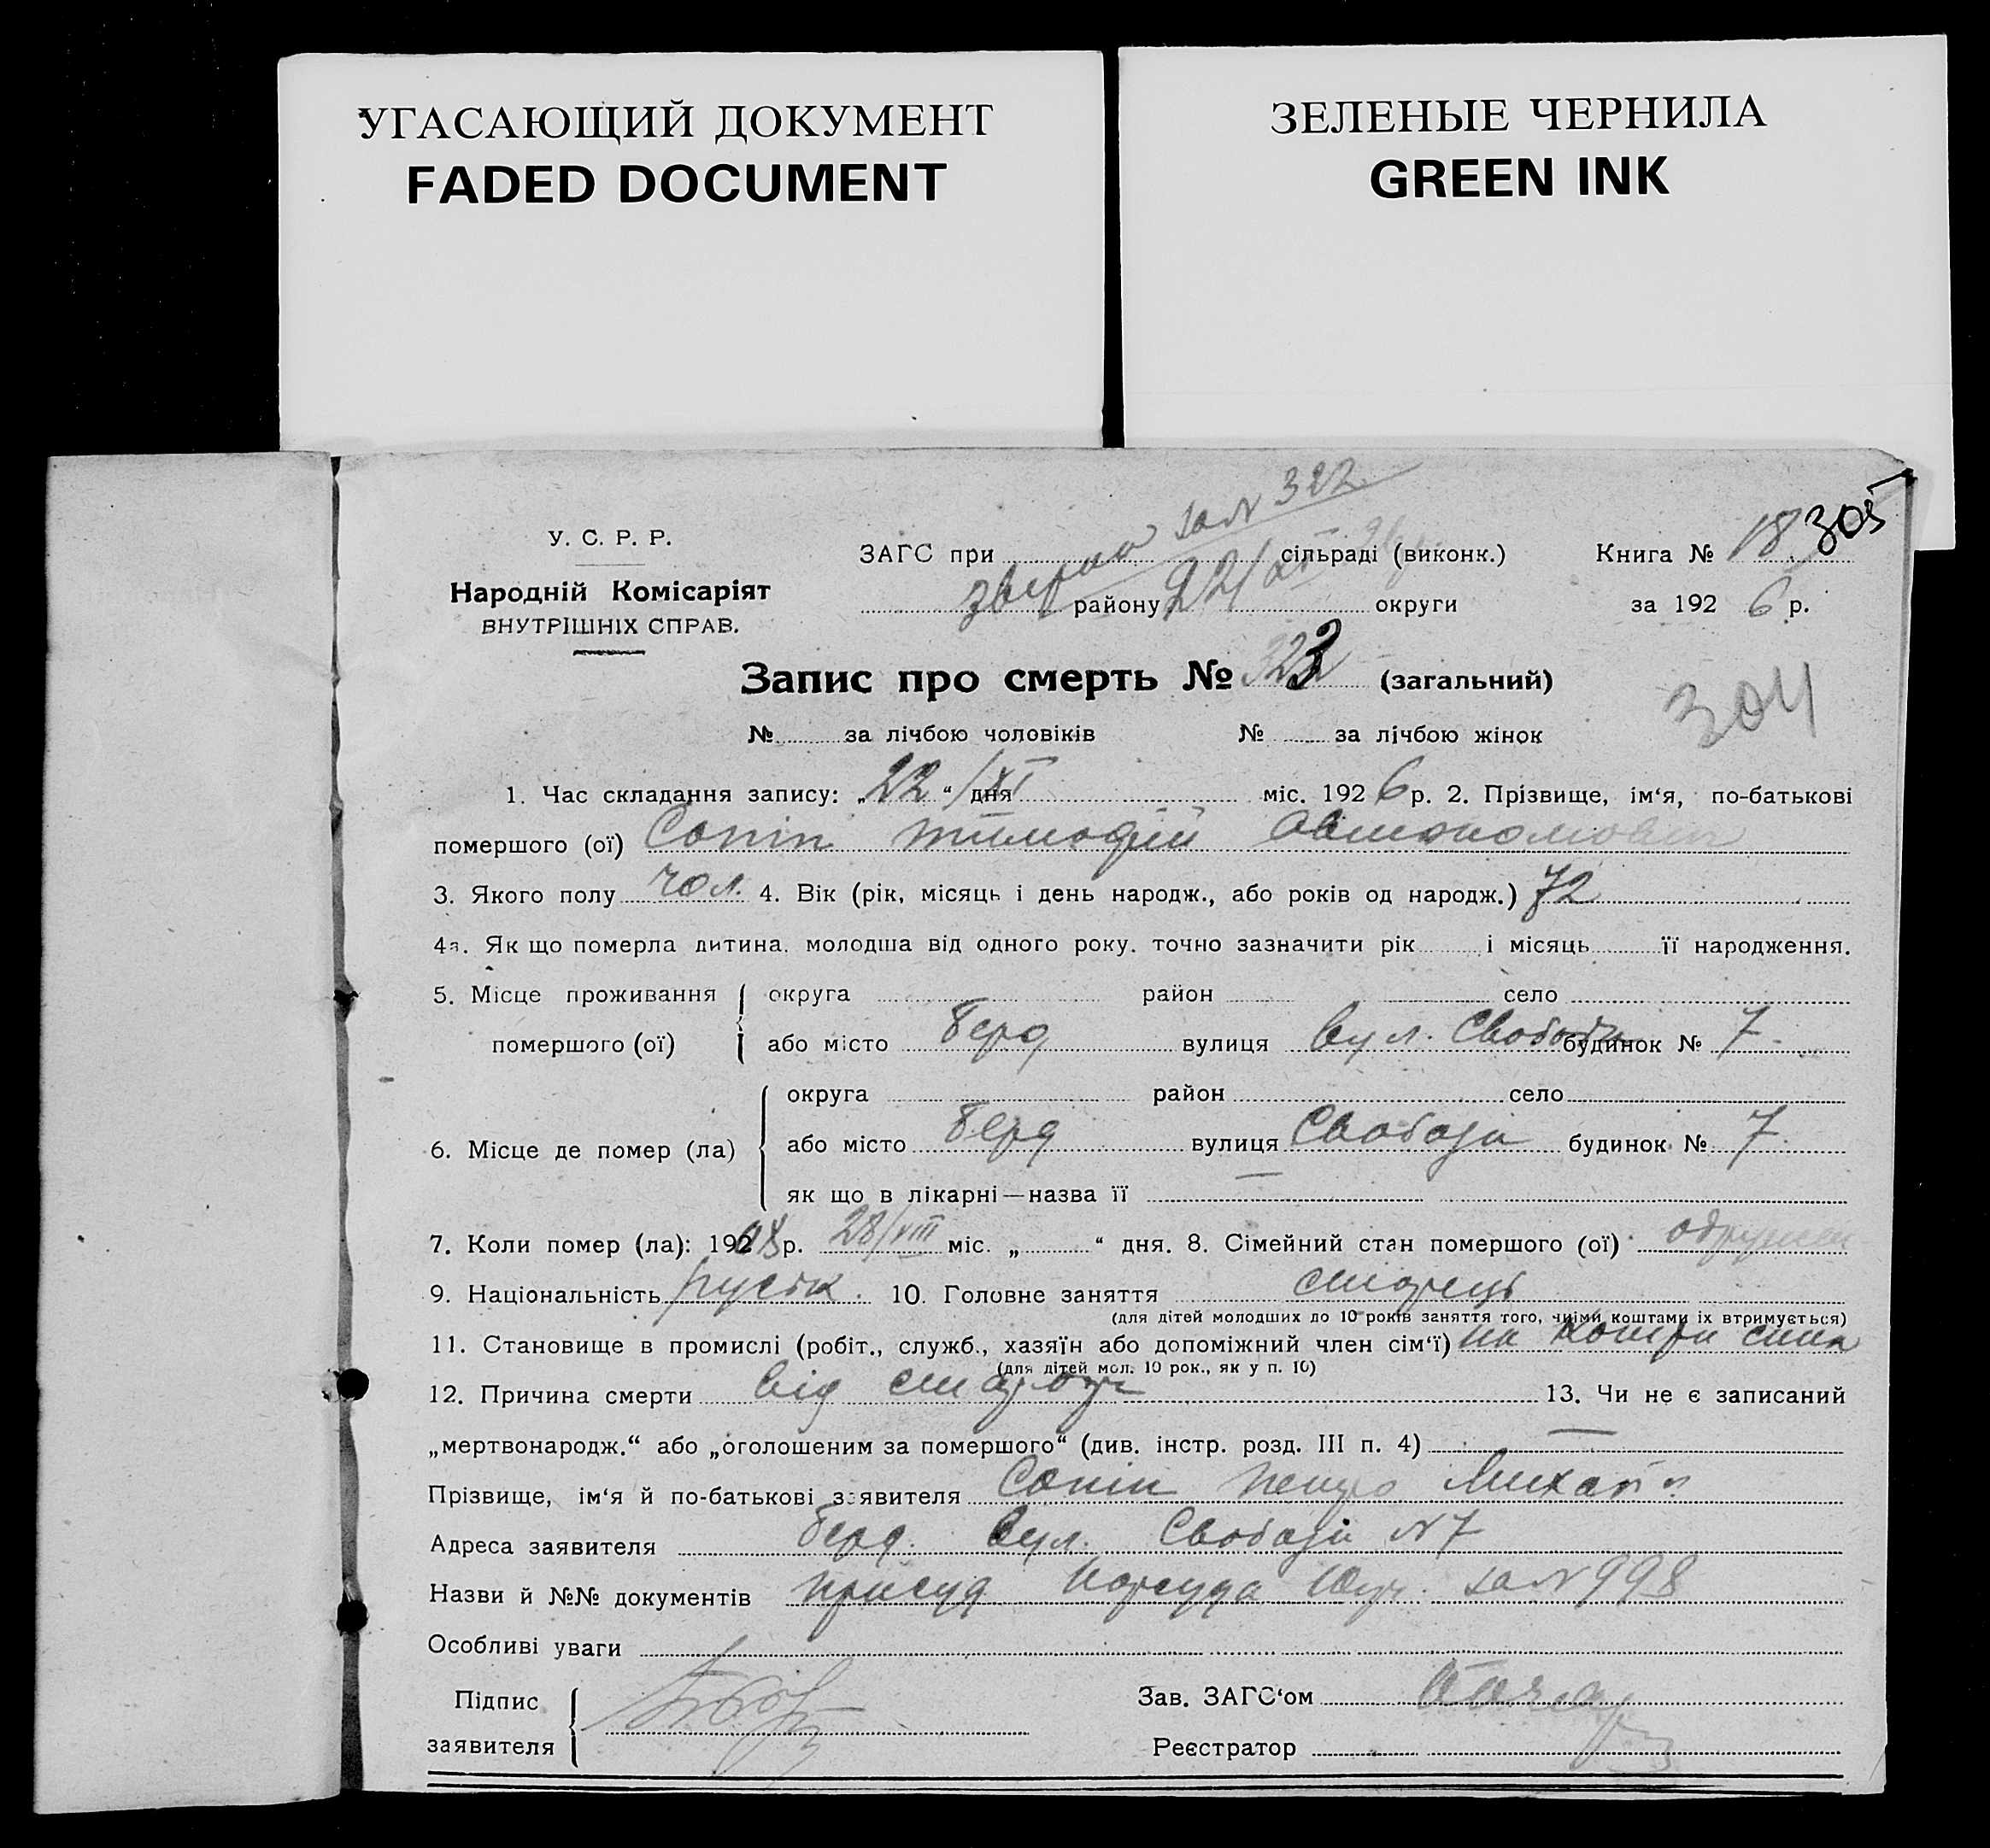 УГАСАЮЩИЙ ДОКУМЕНТ
FADED DOCUMENT
ЗЕЛЕНЫЕ ЧЕРНИЛА
GREEN INK
за N 322
У. С. Р. Р.
Народній Комісаріят
ВНУТРІШНІХ СПРАВ.
ЗАГС при сільраді (виконк.)
району 22/XI округи
Книга № 18 305
за 192 6 р.
Запис про смерть № 323 (загальний)
304
№ за лічбою чоловіків № за лічбою жінок
1. Час складання запису: „22“ дня /XI міс. 192 6 р. 2. Прізвище, ім‘я, по-батькові
помершого (ої) Сопін Тимофій Автономович
3. Якого полу чол. 4. Вік (рік, місяць і день народж., або років од народж.) 72
4а. Як що померла дитина. молодша від одного року. точно зазначити рік і місяць її народження.
5. Місце проживання округа район село
помершого (ої) або місто Берд вулиця вул. Свободи будинок № 7
округа район село
6. Місце де помер (ла) або місто Берд вулиця Свободи будинок № 7.
як що в лікарні—назва її —
7. Коли помер (ла): 192 р. 28/VIII міс. „ “ дня. 8. Сімейний стан помершого (ої)
9. Національність 10. Головне заняття старець
(для дітей молодших до 10 років заняття того, чиїми коштами їх втримується)
11. Становище в промислі (робіт., служб., хазяїн або допоміжний член сім‘ї) на кошти сина
(для дітей мол. 10 рок., як у п. 10)
12. Причина смерти від старости 13. Чи не є записаний
„мертвонародж.“ або „оголошеним за помершого“ (див. інстр. розд. III п. 4) —
Прізвище, ім‘я й по-батькові заявителя Сопін Петро Михайл
Адреса заявителя Берд. вул. Свободи N 7
Назви й №№ документів присуд Нарсуда за N 998
Особливі уваги
Підпис
заявителя
Зав. ЗАГС‘ом
Реєстратор